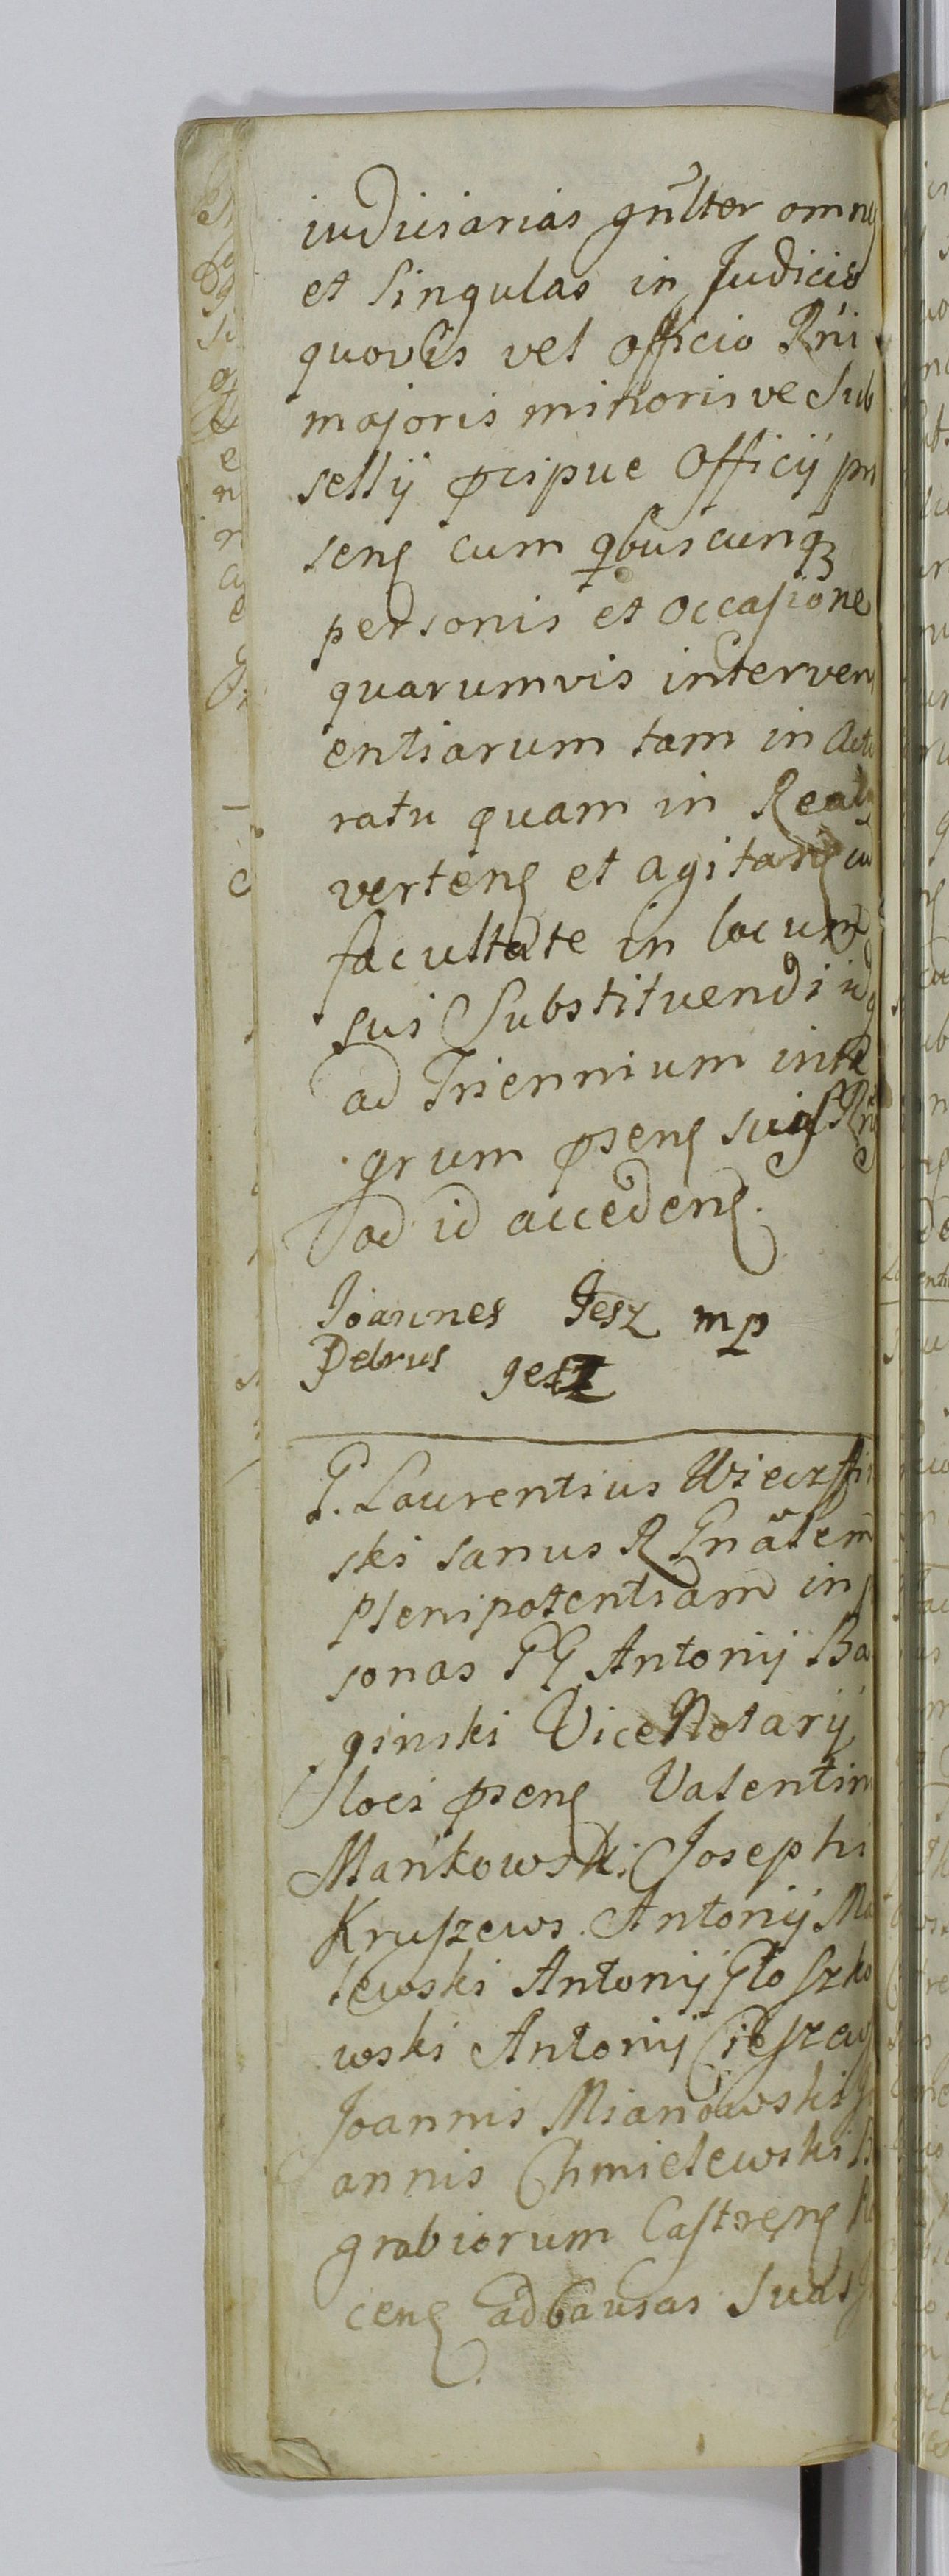 iudiciarias gñlter omnes
et Singulas in Judicio
quovis vel officio Rñi
majoris minorisve Sub
sellij pcipue Officij pn
seng cum qbuscunqz
personis et occasione
quarumvis interven
entiarum tam in Acto
ratu quam in Reatu
verteng et agitang cu
facultate in locum
sui Substituendi idq
ad Triennium inte
grum pseng suig
ad id accedeng.
Joannes Jesz mp
Petrus gesz
G. Laurentius
ski sanus R Gnãlem
Plenipotentiam in p
sonas GG Antonij Ba
ginski ViceNotarij
loci pseng Valentini
Mańkowski Josephi
Kruszews. Antonij Ma
lewski Antonij Głoszko
wski Antonij Cieszew
Joannis Mianowski Jo
annis Chmielewski B
grabiorum Castreng
ceng ad Causas Suas